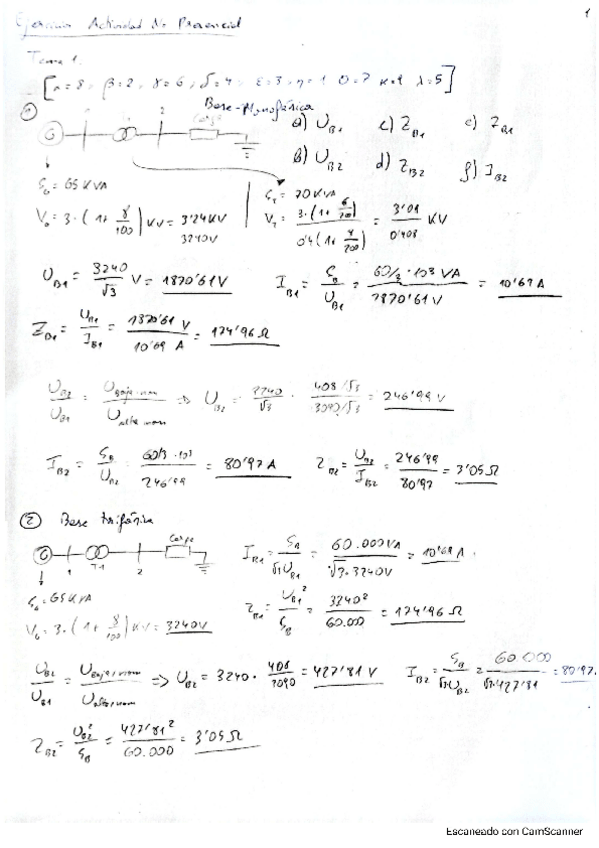 1
Ejercicios Actividad No Presencial
Tema 1.
[α=8, β=2, γ=6, δ=4, ε=3, η=1 θ=7 κ=9 λ=5]
① Base-Monofásica
Carga
a) U_B1 c) Z_B1 e) Z_B1
b) U_B2 d) Z_B2 f) I_B2
G 1 2
S_G = 65 KVA
V_G = 3·(1+8/100) KV = 3'24KV
3240V
S_T = 70 KVA
V_T = 3·(1+6/200) / 0'4(1+4/200) = 3'09/0'408 KV
U_B1 = 3240/√3 V = 1870'61 V I_B1 = S_B/U_B1 = 60/3·10³ VA / 1870'61 V = 10'69 A
Z_B1 = U_B1/I_B1 = 1870'61 V / 10'69 A = 174'96 Ω
U_B2/U_B1 = U_baja nom/U_alta nom => U_B2 = 3240/√3 · 408/√3 / 3090/√3 = 246'99 V
I_B2 = S_B/U_B2 = 60/3·10³ / 246'99 = 80'97 A Z_B2 = U_B2/I_B2 = 246'99/80'97 = 3'05 Ω
② Base trifásica
Carga
G 1 T1 2
I_B1 = S_B/√3 U_B1 = 60.000 VA / √3·3240V = 10'69 A
S_G = 65 KVA
V_G = 3·(1+8/100) KV = 3240V
Z_B1 = U_B1²/S_B = 3240²/60.000 = 174'96 Ω
U_B2/U_B1 = U_baja nom/U_alta nom => U_B2 = 3240·408/3090 = 427'81 V I_B2 = S_B/√3 U_B2 = 60.000/√3·427'81 = 80'97
Z_B2 = U_B2²/S_B = 427'81²/60.000 = 3'05 Ω
Escaneado con CamScanner